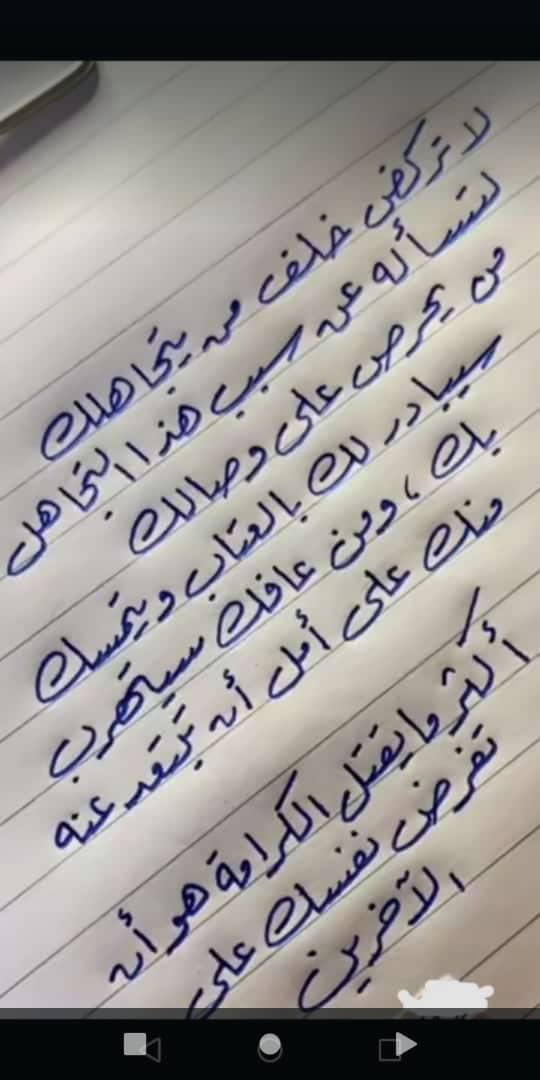 لا تركض خلف من يتجاهلك
لتسأله عن سبب هذا التجاهل
من يحرص على وصالك
سيبادر لك بالعتاب ويتمسك
بك ، ومن عافك سيتهرب
منك على أمل أن تبتعد عنه
أكثر ما يقتل الكرامة هو أن
تفرض نفسك على
الآخرين